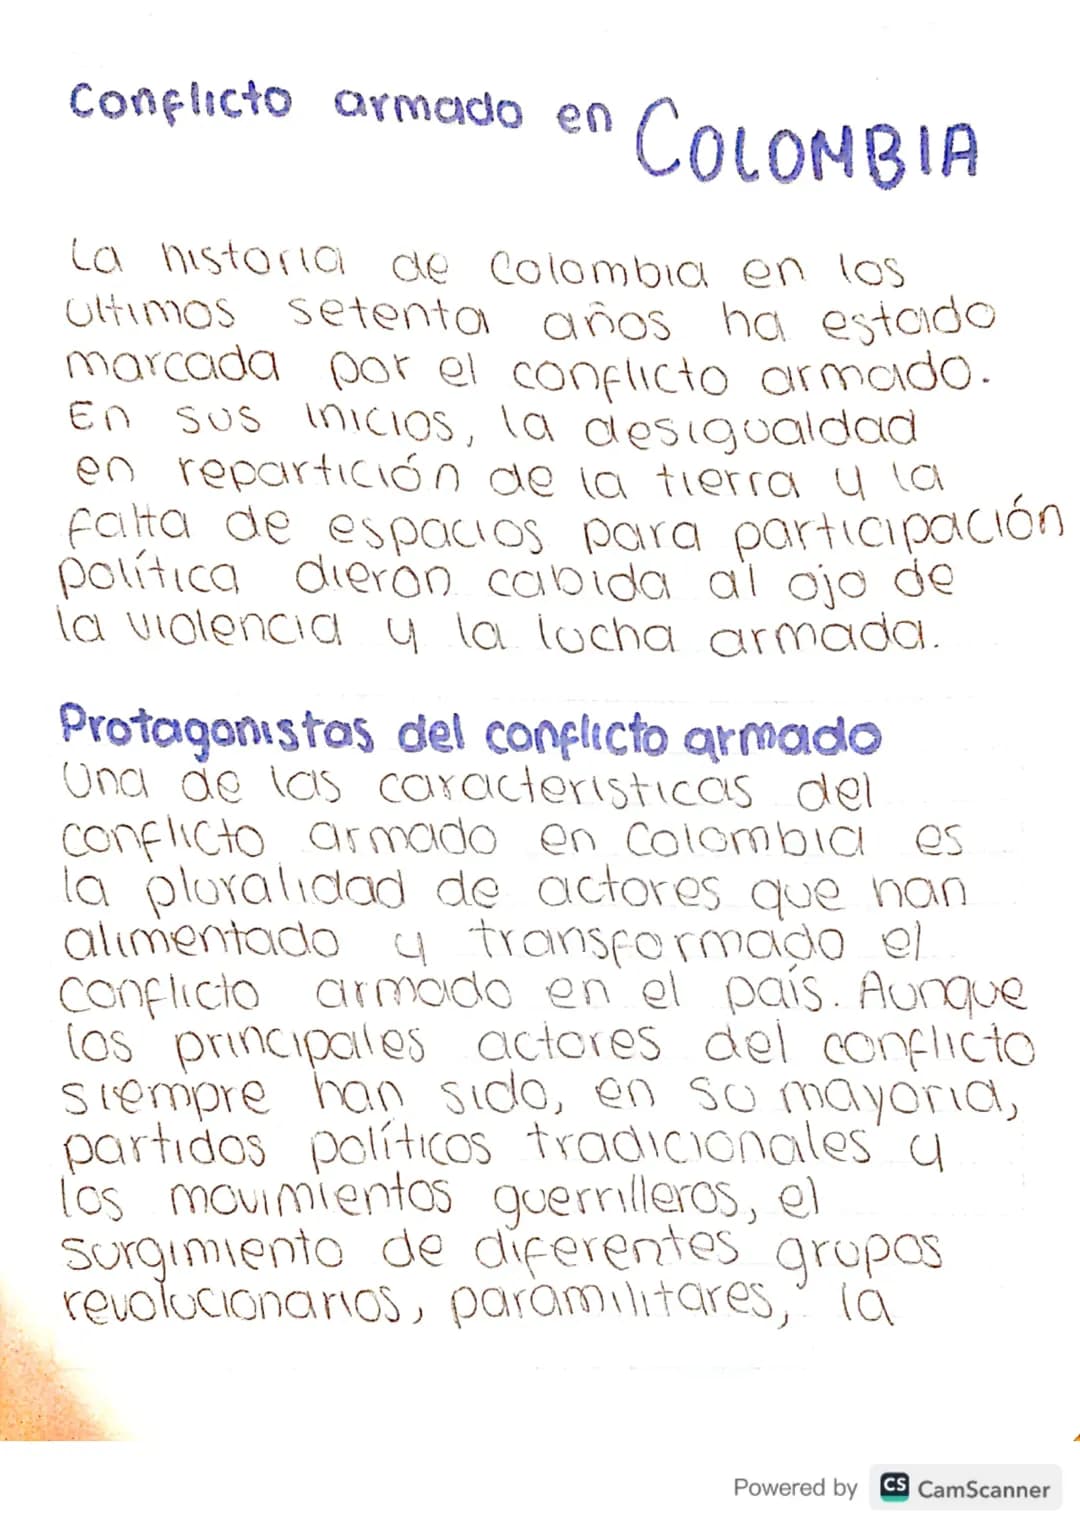 Conflicto armado en COLOMBIA
La historia de Colombia en los
ultimos setenta años ha estado
marcada por el conflicto armado.
En sus inicios, la desigualdad
en repartición de la tierra y la
falta de espacios para participación
política dieron cabida al ojo de
la violencia y la lucha armada.
Protagonistas del conflicto armado
Una de las caracteristicas del
conflicto armado en Colombia es
la pluralidad de actores que han
alimentado y transformado el
conflicto armado en el país. Aunque
los principales actores del conflicto
siempre han sido, en su mayoria,
partidos políticos tradicionales y
los movimientos guerrilleros, el
surgimiento de diferentes grupos
revolucionarios, paramilitares, la
Powered by CS CamScanner